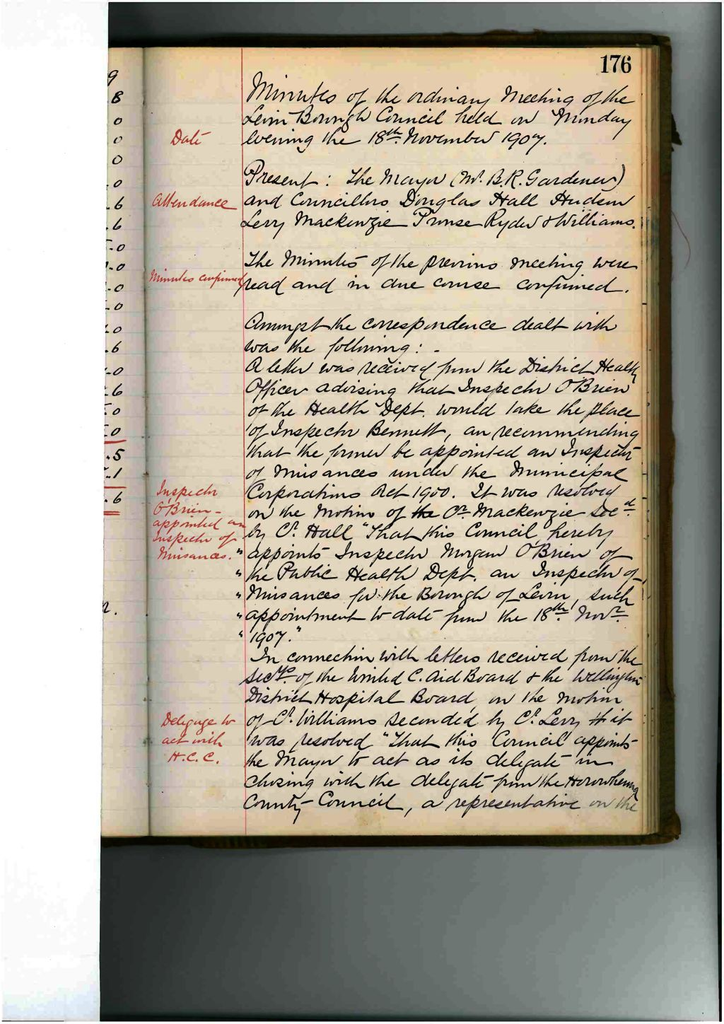 176
Minutes of the ordinary Meeting of the
Levin Borough Council held on Monday
Date
Evening the 18th November 1907.
Present: The Mayor (Mr. B.R. Gardener)
Attendance
and Councillors Douglas Hall Hudson
Levy Mackenzie Prouse Ryder & Williams.
The Minutes of the previous meeting were
Minutes confirmed
read and in due course confirmed.
Amongst the correspondence dealt with
was the following: -
A letter was received from the District Health
Officer advising that Inspector O'Brien
of the Health Dept. would take the place
of Inspector Bennett, an recommending
that the former be appointed an Inspector
of Nuisances under the Municipal
Inspector
O'Brien -
appointed an
inspector of
Nuisances.
Corporations Act 1900. It was resolved
on the Motion of the Cr. Mackenzie Secd.
by Cr. Hall "That this Council hereby
" appoints Inspector Morgan O'Brien of
" the Public Health Dept. an Inspector of
" Nuisances for the Borough of Levin, such
" appointment to date from the 18th Novr.
" 1907."
In connection with letters received from the
Secty. of the United C. Aid Board & the Wellington
District Hospital Board, on the motion
Delegate to
act with
H.C.C.
of Cr. Williams seconded by Cr. Levy it
was resolved "That this Council appoints
the Mayor to act as its delegate in
chosing with the delegate from the Horowhenua
County Council, a representative on the